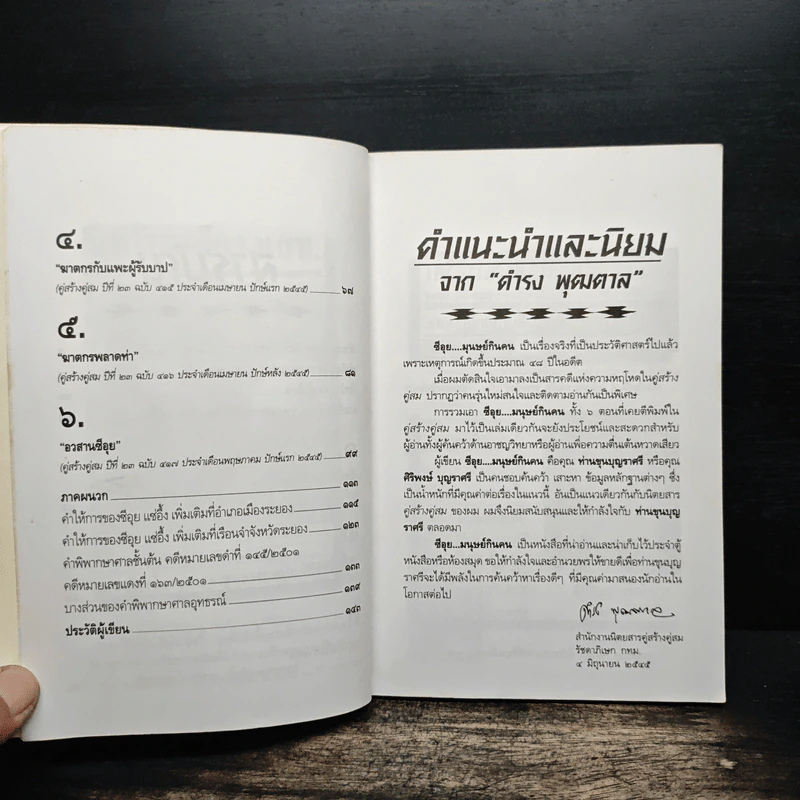 ๔.
"ฆาตกรกับแพะผู้รับบาป"
(คู่สร้างคู่สม ปีที่ ๒๓ ฉบับ ๔๑๕ ประจำเดือนเมษายน ปักษ์แรก ๒๕๔๕) ๖๗
๕.
"ฆาตกรพลาดท่า"
(คู่สร้างคู่สม ปีที่ ๒๓ ฉบับ ๔๑๖ ประจำเดือนเมษายน ปักษ์หลัง ๒๕๔๕) ๘๑
๖.
"อวสานซีอุย"
(คู่สร้างคู่สม ปีที่ ๒๓ ฉบับ ๔๑๗ ประจำเดือนพฤษภาคม ปักษ์แรก ๒๕๔๕) ๙๙
ภาคผนวก ๑๑๓
คำให้การของซีอุย แซ่อึ้ง เพิ่มเติมที่อำเภอเมืองระยอง ๑๑๔
คำให้การของซีอุย แซ่อึ้ง เพิ่มเติมที่เรือนจำจังหวัดระยอง ๑๒๓
คำพิพากษาศาลชั้นต้น คดีหมายเลขดำที่ ๑๔๕/๒๕๐๑
คดีหมายเลขแดงที่ ๑๖๓/๒๕๐๑ ๑๓๓
บางส่วนของคำพิพากษาศาลอุทธรณ์ ๑๓๙
ประวัติผู้เขียน ๑๔๓
คำแนะนำและนิยม
จาก "ดำรง พุฒตาล"
ซีอุย....มนุษย์กินคน เป็นเรื่องจริงที่เป็นประวัติศาสตร์ไปแล้ว
เพราะเหตุการณ์เกิดขึ้นประมาณ ๔๘ ปีในอดีต
เมื่อผมตัดสินใจเอามาลงเป็นสารคดีแห่งความหฤโหดในคู่สร้าง
คู่สม ปรากฏว่าคนรุ่นใหม่สนใจและติดตามอ่านกันเป็นพิเศษ
การรวมเอา ซีอุย....มนุษย์กินคน ทั้ง ๖ ตอนที่เคยตีพิมพ์ใน
คู่สร้างคู่สม มาไว้เป็นเล่มเดียวกันจะยังประโยชน์และสะดวกสำหรับ
ผู้อ่านทั้งผู้ค้นคว้าด้านอาชญวิทยาหรือผู้อ่านเพื่อความตื่นเต้นหวาดเสียว
ผู้เขียน ซีอุย....มนุษย์กินคน คือคุณ ท่านขุนบุญราศรี หรือคุณ
ศิริพงษ์ บุญราศรี เป็นคนชอบค้นคว้า เสาะหา ข้อมูลหลักฐานต่างๆ ซึ่ง
เป็นน้ำหนักที่มีคุณค่าต่อเรื่องในแนวนี้ อันเป็นแนวเดียวกันกับนิตยสาร
คู่สร้างคู่สม ของผม ผมจึงนิยมสนับสนุนและให้กำลังใจกับ ท่านขุนบุญ
ราศรี ตลอดมา
ซีอุย...มนุษย์กินคน เป็นหนังสือที่น่าอ่านและน่าเก็บไว้ประจำตู้
หนังสือหรือห้องสมุด ขอให้กำลังใจและอำนวยพรให้ขายดีเพื่อท่านขุนบุญ
ราศรีจะได้มีพลังในการค้นคว้าหาเรื่องดีๆ ที่มีคุณค่ามาสนองนักอ่านใน
โอกาสต่อไป
สำนักงานนิตยสารคู่สร้างคู่สม
รัชดาภิเษก กทม.
๔ มิถุนายน ๒๕๔๕